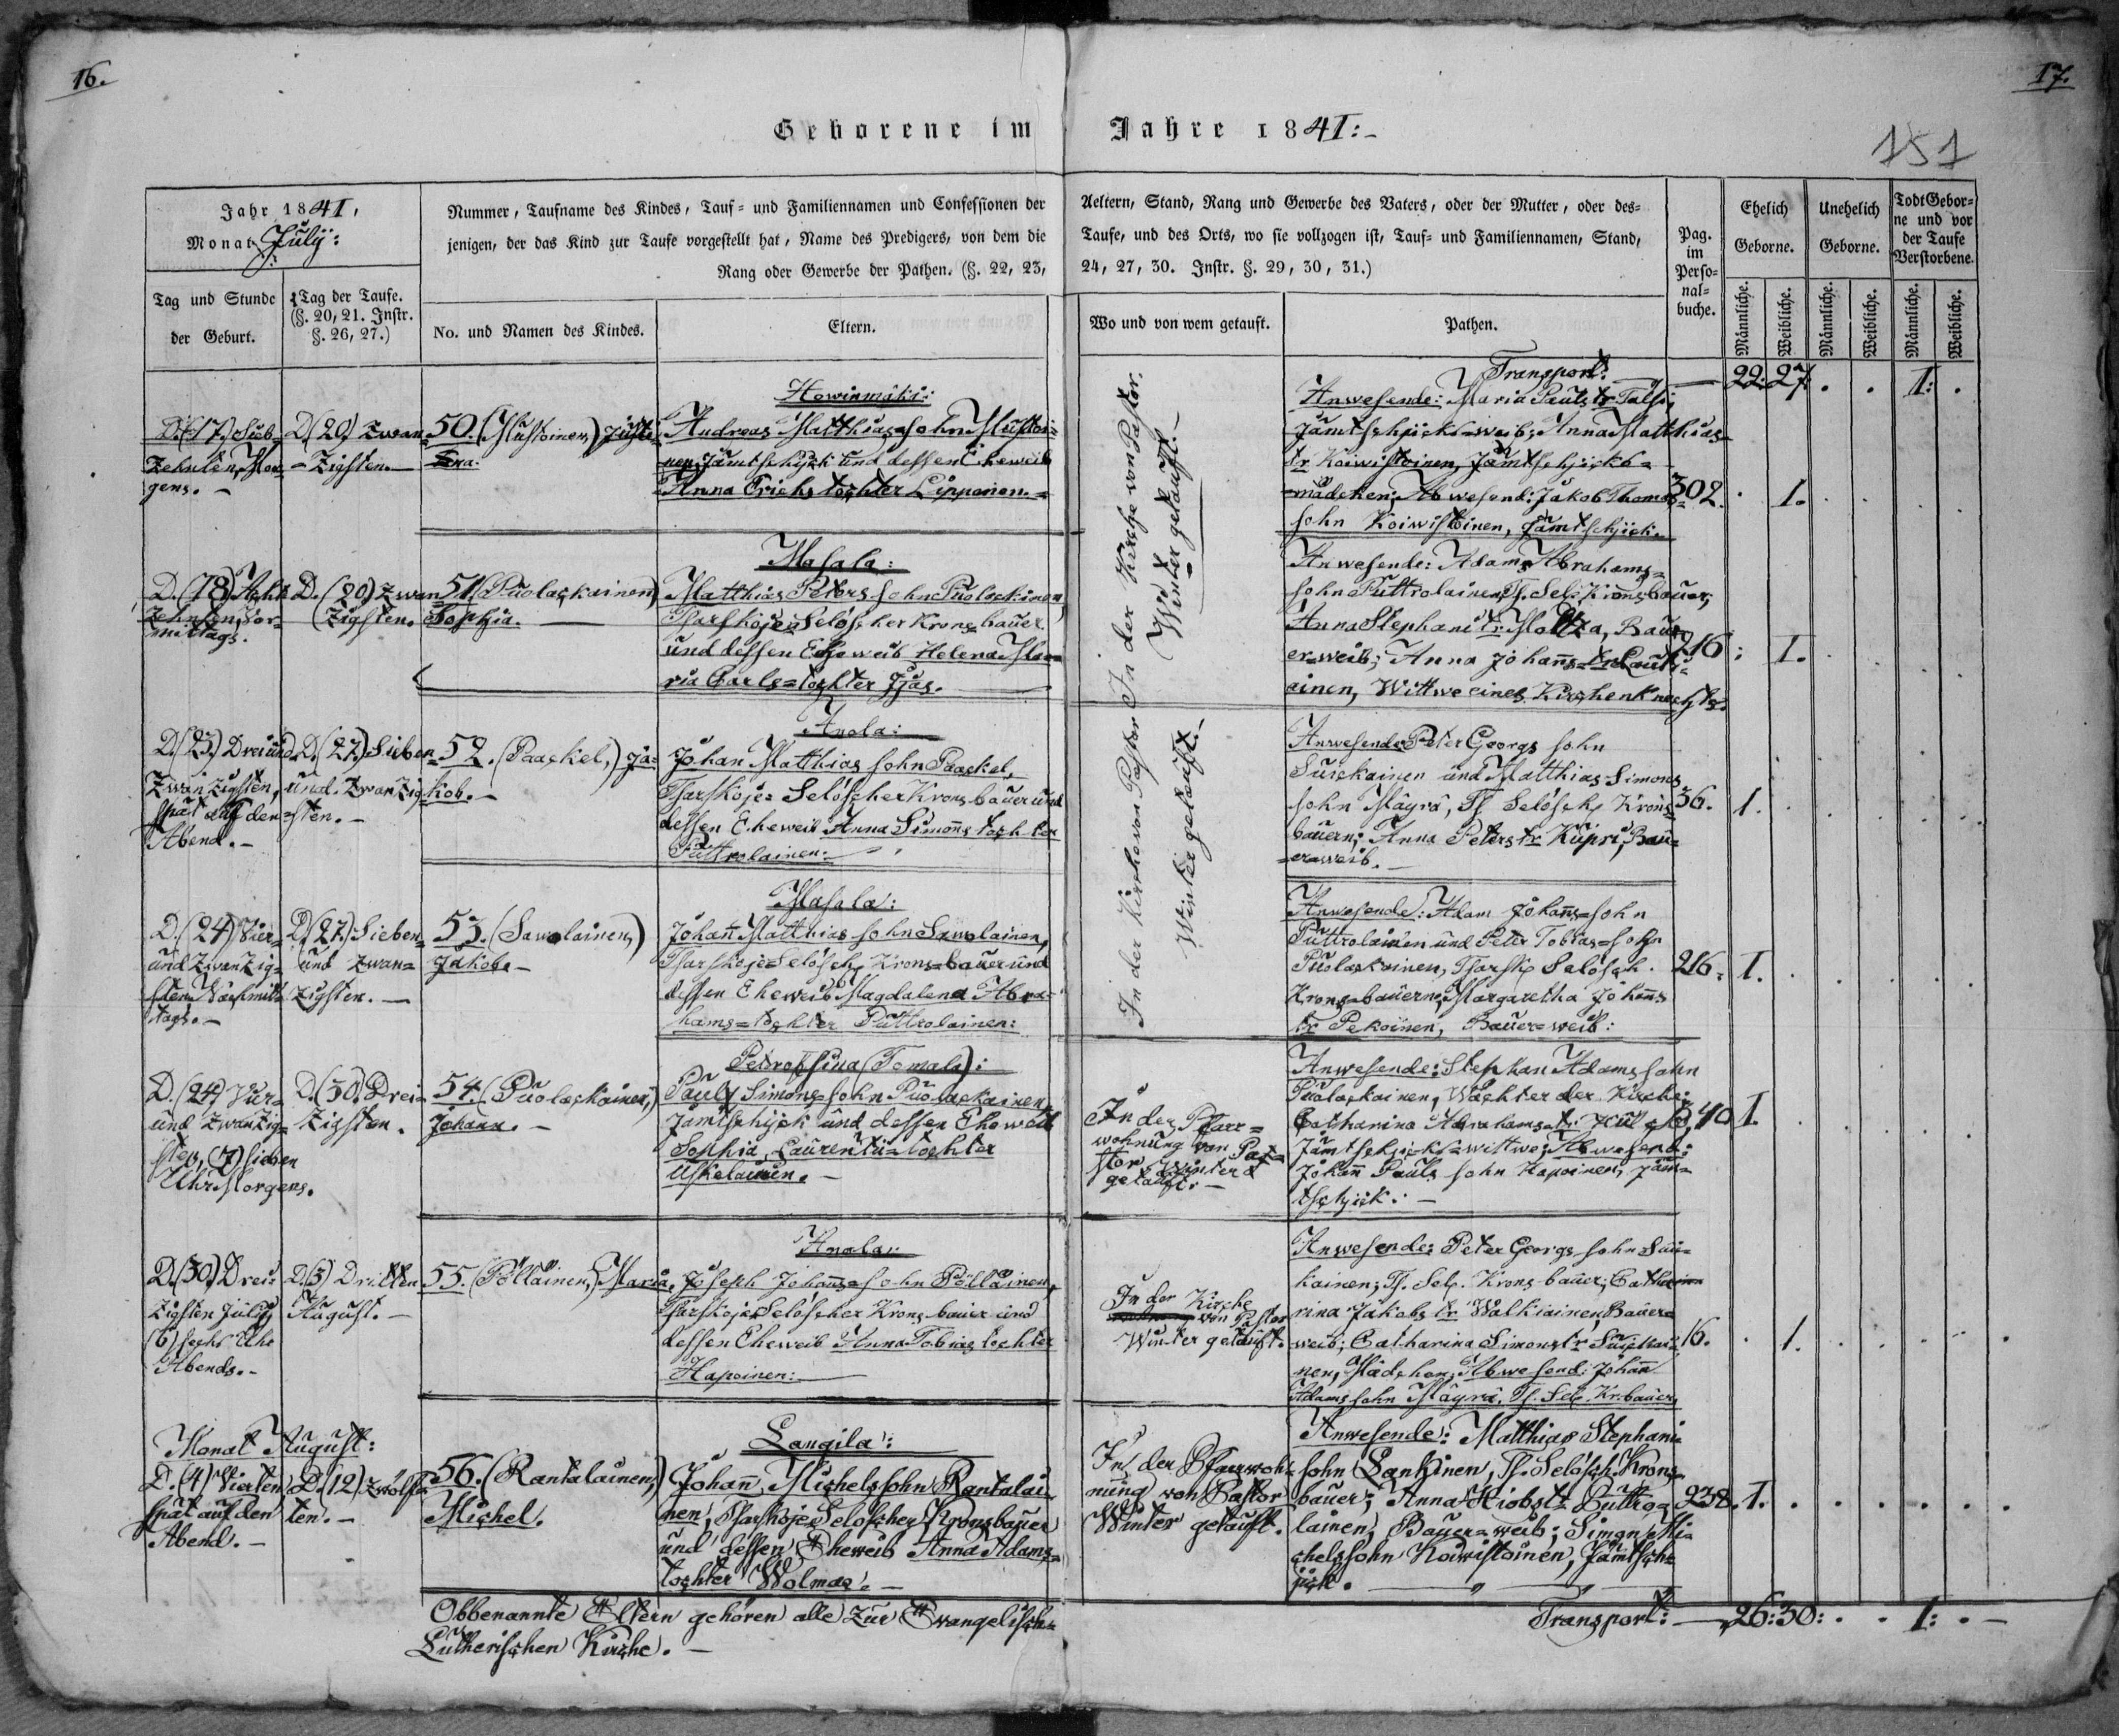 16.
17.
151
Geborene im Jahre 1841:-
Jahr 1841,
Monat July:
Tag und Stunde
der Geburt.
Tag der Taufe.
(§. 20, 21. Instr.
§. 26, 27.)
Nummer, Taufname des Kindes, Tauf- und Familiennamen und Confessionen der
jenigen, der das Kind zur Taufe vorgestellt hat, Name des Predigers, von dem die
Rang oder Gewerbe der Pathen. (§. 22, 23,
No. und Namen des Kindes.
Eltern.
Aeltern, Stand, Rang und Gewerbe des Vaters, oder der Mutter, oder des-
Taufe, und des Orts, wo sie vollzogen ist, Tauf- und Familiennamen, Stand,
24, 27, 30. Instr. §. 29, 30, 31.)
Wo und von wem getauft.
Pathen.
Pag.
im
Perso-
nal-
buche.
Ehelich
Geborne.
Unehelich
Geborne.
Todt Gebor-
ne und vor
der Taufe
Verstorbene.
Männliche.
Weibliche.
Männliche.
Weibliche.
Männliche.
Weibliche.
Transport: — 22: 27. . . 1: .
D. (17) Sieb-
zehnten, Mor-
gens. -
D. (20) Zwan-
=zigsten. -
50. (Mustoinen,) Justi-
na.
Howinmäki:
Andreas Matthias=sohn Mustoi-
nen, Jämtschjick und dessen Eheweib
Anna Erichs tochter Lipponen. =
In der Kirche von Pastor
Winter getauft. -
Anwesende: Maria Pauls tr. Talsi,
Jämtschjicks=weib; Anna Matthias-
tr. Koiwistoinen, Jämtschjicks=
=mädchen; Abwesend: Jakob Thomas=
sohn Koiwistoinen, Jämtschjick.
302. . 1. . . . .
D. (18) Acht
zehnten, Vor-
mittags.
D. (20) Zwan
zigsten.
51. (Puolackainen)
Sophia. —
Masala:
Matthias Peters sohn Puolackinen
Zarskoje=Selöscher Krons=bauer
und dessen Eheweib Helena Ma-
ria Carls=tochter Jjäs. —
Anwesende: Adam Abrahams=
sohn Puttrolainen, Zf. Sel. Kronsbauer,
Anna Stephans tr. Moltza, Bau-
er=weib; Anna Johanns=tr. Lauki-
ainen, Wittwe eines Kirchenknechts.
216: 1. . . . .
D. (23) Dreiund
zwanzigsten,
spät auf den
Abend. -
D. (27.) Sieben=
und zwanzig-
sten. -
52. (Paaskel,) Ja-
kob. -
Anola:
Johan Matthias sohn Paaskel,
Zarskoje=Selöscher Kronsbauer und
dessen Eheweib Anna Simons tochter
Puttrolainen.
In der Kirche von Pastor
Winter getauft. -
Anwesende: Peter Georgs sohn
Suickainen und Matthias Simons
sohn Mäyrä, Zf. Selösch. Krons
bauern; Anna Peters tr. Kupri, Bau-
=er=weib. -
36. 1. . . . . .
D. (24) Vier-
und zwanzig-
sten, Nachmit-
tags. -
D. (27.) Sieben=
und zwan=
zigsten. —
53. (Sawolainen,)
Jakob. -
Masala:
Johann Matthias sohn Sawolainen,
Zarskoje=Selösch. Krons=bauer und
dessen Eheweib Magdalena Abra-
hams=tochter Puttrolainen:
Anwesende: Adam Johanns=sohn
Puttrolainen und Peter Tobias=sohn
Puolackainen, Zarsk. Selösch.
Krons=bauern; Margaretha Johanns
tr. Pekoinen, Bauer=weib:
216. 1. . . . . .
D. (24) Vier=
und zwanzig=
sten, (7) sieben
Uhr Morgens.
D. (30.) Drei=
zigsten.
54. (Puolackainen,)
Johann. -
Petrofsina (Tomala):
Pauly Simons=sohn Puolackainen
Jämtschjick und dessen Eheweib
Sophia, Laurentii=tochter
Uskelainen. -
In der Pfarr=
wohnung von Pas-
stor Winter
getauft. -
Anwesende: Stephan Adams sohn
Puolackainen, Wächter der Kirche;
Catharina Abrahams=t.
Jämtschjicks=wittwe; Abwesend:
Johann Pauls sohn Hapoinen, Jäm-
tschjick. -
1. . . . . .
D. (30) Drei-
zigsten July,
(6) sechs Uhr
Abends. -
D. (3) Dritten
August. -
55. (Pöllainen,) Maria.
Anola:
Joseph Johanns=sohn Pöllainen,
Zarskoje=Selöscher Krons bauer und
dessen Eheweib Anna Tobias tochter
Hapoinen: —
In der Kirche
von Pastor
Winter getauft.
Anwesende: Peter Georgs sohn Sui-
kainen; Zf. Sel. Krons bauer; Catha
rina Jakobs tr. Walkiainen, Bauer=
weib; Catharina Simons tr. Suickai-
nen, Mädchen; Abwesend: Johann
Adams sohn Mäyrä, Zf. Sel. Kr. bauer,
16. . 1. . . . .
Monat August:
D. (4) Vierten
spät auf den
Abend. -
D. (12) zwölf=
ten. -
56. (Rantalainen,)
Michel.
Langila:
Johann, Michelssohn Rantalai
nen, Zarskoje Selöscher Kronsbauer
und dessen Eheweib Anna Adams=
tochter Wolmar. -
In der Pfarrwoh=
nung von Pastor
Winter getauft.
Anwesende: Matthias Stephans
sohn Lankinen, Zf. Selösch. Krons-
bauer; Anna Hiobs t. Puttro=
lainen, Bauer=weib; Simon Mi-
chelssohn Koiwistoinen, Jämtsch=
jick. —
232. 1. . . . . .
Obbenannte Eltern gehören alle zur Evangelisch=
Lutherischen Kirche. -
Transport: — 26: 30: . . 1: . -